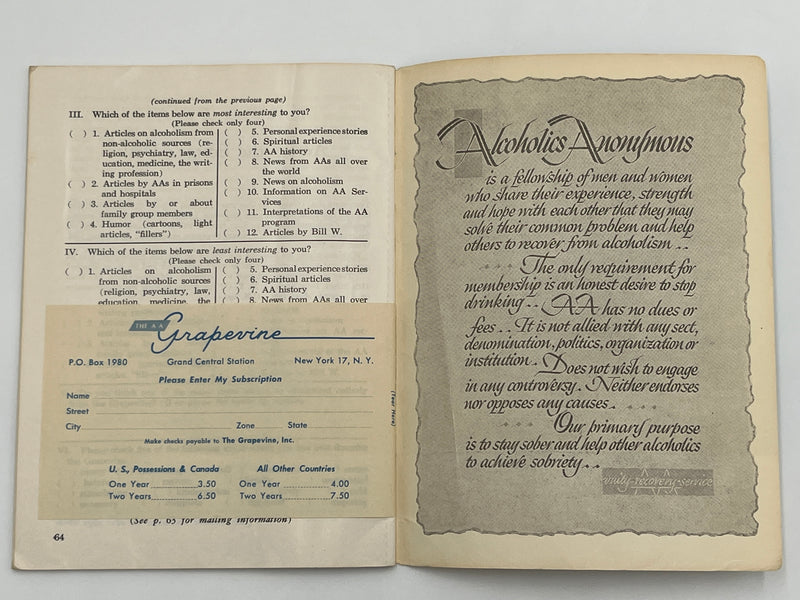 (continued from the previous page)
III. Which of the items below are most interesting to you?
(Please check only four)
( ) 1. Articles on alcoholism from
non-alcoholic sources (re-
ligion, psychiatry, law, ed-
ucation, medicine, the writ-
ing profession)
( ) 2. Articles by AAs in prisons
and hospitals
( ) 3. Articles by or about
family group members
( ) 4. Humor (cartoons, light
articles, "fillers")
( ) 5. Personal experience stories
( ) 6. Spiritual articles
( ) 7. AA history
( ) 8. News from AAs all over
the world
( ) 9. News on alcoholism
( ) 10. Information on AA Ser-
vices
( ) 11. Interpretations of the AA
program
( ) 12. Articles by Bill W.
IV. Which of the items below are least interesting to you?
(Please check only four)
( ) 1. Articles on alcoholism
from non-alcoholic sources
(religion, psychiatry, law,
education, medicine, the
( ) 5. Personal experience stories
( ) 6. Spiritual articles
( ) 7. AA history
( ) 8. News from AAs all over
THE AA
Grapevine
P.O. Box 1980 Grand Central Station New York 17, N. Y.
Please Enter My Subscription
Name
Street
City Zone State
Make checks payable to The Grapevine, Inc.
(Tear Here)
U. S., Possessions & Canada
One Year 3.50
Two Years 6.50
All Other Countries
One Year 4.00
Two Years 7.50
(See p. 63 for mailing information)
64
Alcoholics Anonymous
is a fellowship of men and women
who share their experience, strength
and hope with each other that they may
solve their common problem and help
others to recover from alcoholism . .
The only requirement for
membership is an honest desire to stop
drinking . . AA has no dues or
fees . . It is not allied with any sect,
denomination, politics, organization or
institution . Does not wish to engage
in any controversy . Neither endorses
nor opposes any causes .
Our primary purpose
is to stay sober and help other alcoholics
to achieve sobriety . .
unity-recovery-service